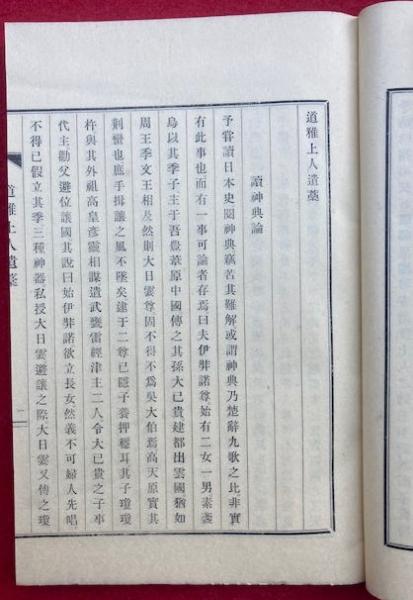 道雅上人遺藁
讀神典論
予嘗讀日本史閱神典竊苦其難解或謂神典乃楚辭九歌之比非實
有此事也而有一事可論者存焉曰夫伊弉諾尊始有二女一男素盞
烏以其季子主于吾豊葦原中國傳之其孫大已貴建都出雲國猶如
周王季文王相及然則大日孁尊固不得不爲吳大伯焉高天原實其
荊蠻也應手揖讓之風不墜矣逮于二尊已隱子養押穗耳其子瓊瓊
杵與其外祖高皇彥靈相謀遣武甕雷經津主二人令大已貴之子事
代主勸父避位讓國其說曰始伊弉諾欲立長女然義不可婦人先唱
不得已假立其季三種神器私授大日孁避讓之際大日孁又傳之瓊
道雅上人遺藁
一